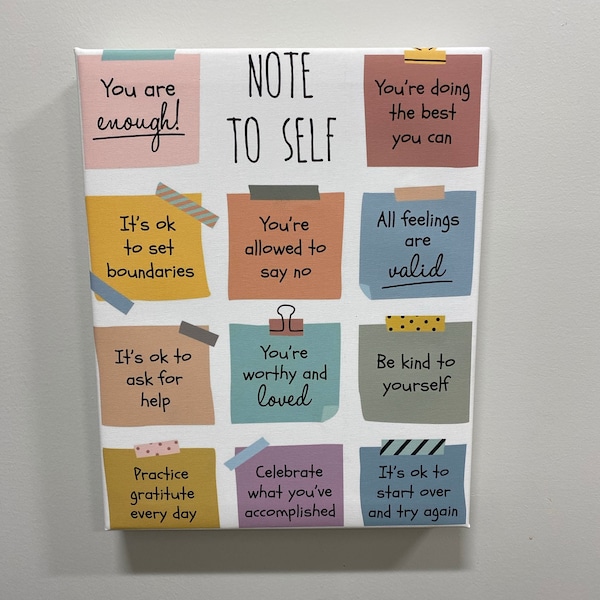 NOTE
TO SELF
You are
enough!
You're doing
the best
you can
It's ok
to set
boundaries
You're
allowed to
say no
All feelings
are
valid
It's ok to
ask for
help
You're
worthy and
loved
Be kind to
yourself
Practice
gratitute
every day
Celebrate
what you've
accomplished
It's ok to
start over
and try again